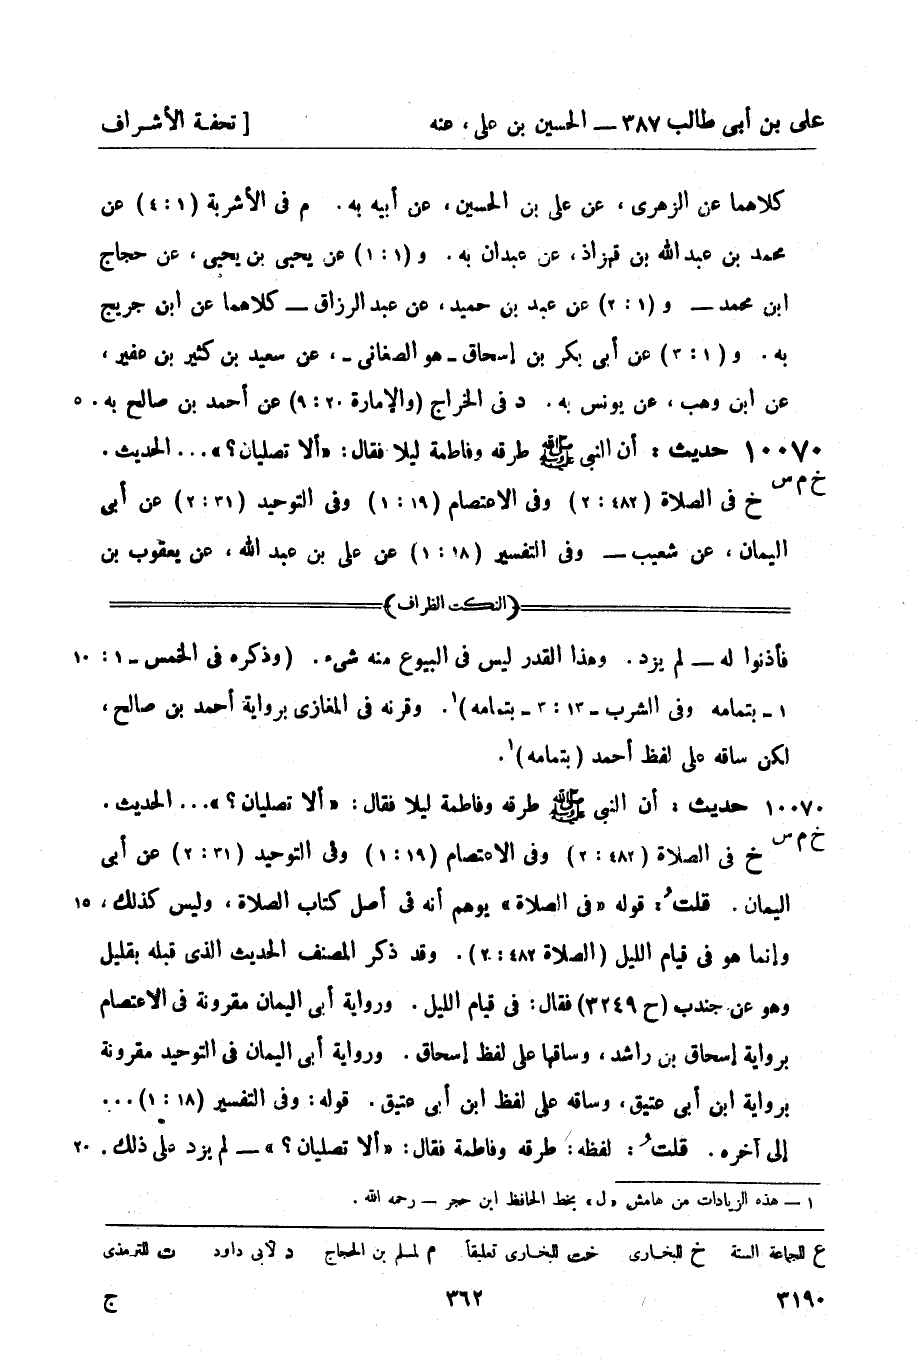 على بن أبى طالب ٣٨٧ — الحسين بن على ، عنه [ تحفـة الأشـراف
كلاهما عن الزهرى ، عن على بن الحسين ، عن أبيه به . م فى الأشربة (١ : ٤) عن
محمد بن عبد الله بن قهزاذ ، عن عبدان به . و (١ : ١) عن يحيى بن يحيى ، عن حجاج
ابن محمد — و (١ : ٢) عن عبد بن حميد ، عن عبد الرزاق — كلاهما عن ابن جريج
به . و (١ : ٣) عن أبى بكر بن إسحاق - هو الصغانى - ، عن سعيد بن كثير بن عفير ،
عن ابن وهب ، عن يونس به . د فى الخراج (والإمارة ٢٠ : ٩) عن أحمد بن صالح به . ٥
١٠٠٧٠ حديث : أن النبى ﷺ طرقه وفاطمة ليلا فقال : «ألا تصليان ؟» . . . الحديث .
خ م س
خ فى الصلاة (٤٨٢ : ٢) وفى الاعتصام (١٩ : ١) وفى التوحيد (٣١ : ٢) عن أبى
اليمان ، عن شعيب — وفى التفسير (١٨ : ١) عن على بن عبد الله ، عن يعقوب بن
(النكت الظراف)
فأذنوا له — لم يزد . وهذا القدر ليس فى البيوع منه شىء . (وذكره فى الخمس - ١ : ١٠
١ - بتمامه وفى الشرب - ١٣ : ٣ - بتمامه)١ . وقرنه فى المغازى برواية أحمد بن صالح ،
لكن ساقه على لفظ أحمد (بتمامه)١ .
١٠٠٧٠ حديث : أن النبى ﷺ طرقه وفاطمة ليلا فقال : « ألا تصليان ؟ » . . . الحديث .
خ م س
خ فى الصلاة (٤٨٢ : ٢) وفى الاعتصام (١٩ : ١) وفى التوحيد (٣١ : ٢) عن أبى
اليمان . قلتُ : قوله «فى الصلاة» يوهم أنه فى أصل كتاب الصلاة ، وليس كذلك ، ١٥
وإنما هو فى قيام الليل (الصلاة ٤٨٢ : ٢) . وقد ذكر المصنف الحديث الذى قبله بقليل
وهو عن جندب (ح ٣٢٤٩) فقال : فى قيام الليل . ورواية أبى اليمان مقرونة فى الاعتصام
برواية إسحاق بن راشد ، وساقها على لفظ إسحاق . ورواية أبى اليمان فى التوحيد مقرونة
برواية ابن أبى عتيق ، وساقه على لفظ ابن أبى عتيق . قوله : وفى التفسير (١٨ : ١) . . .
إلى آخره . قلتُ : لفظه : طرقه وفاطمة فقال : «ألا تصليان ؟» — لم يزد على ذلك . ٢٠
١ — هذه الزيادات من هامش «ل» بخط الحافظ ابن حجر — رحمه الله .
ع للجماعة الستة خ للبخـارى خت للبخارى تعليقاً م لمسلم بن الحجاج د لأبى داود ت للترمذى
٣١٩٠ ٣٦٢ ج